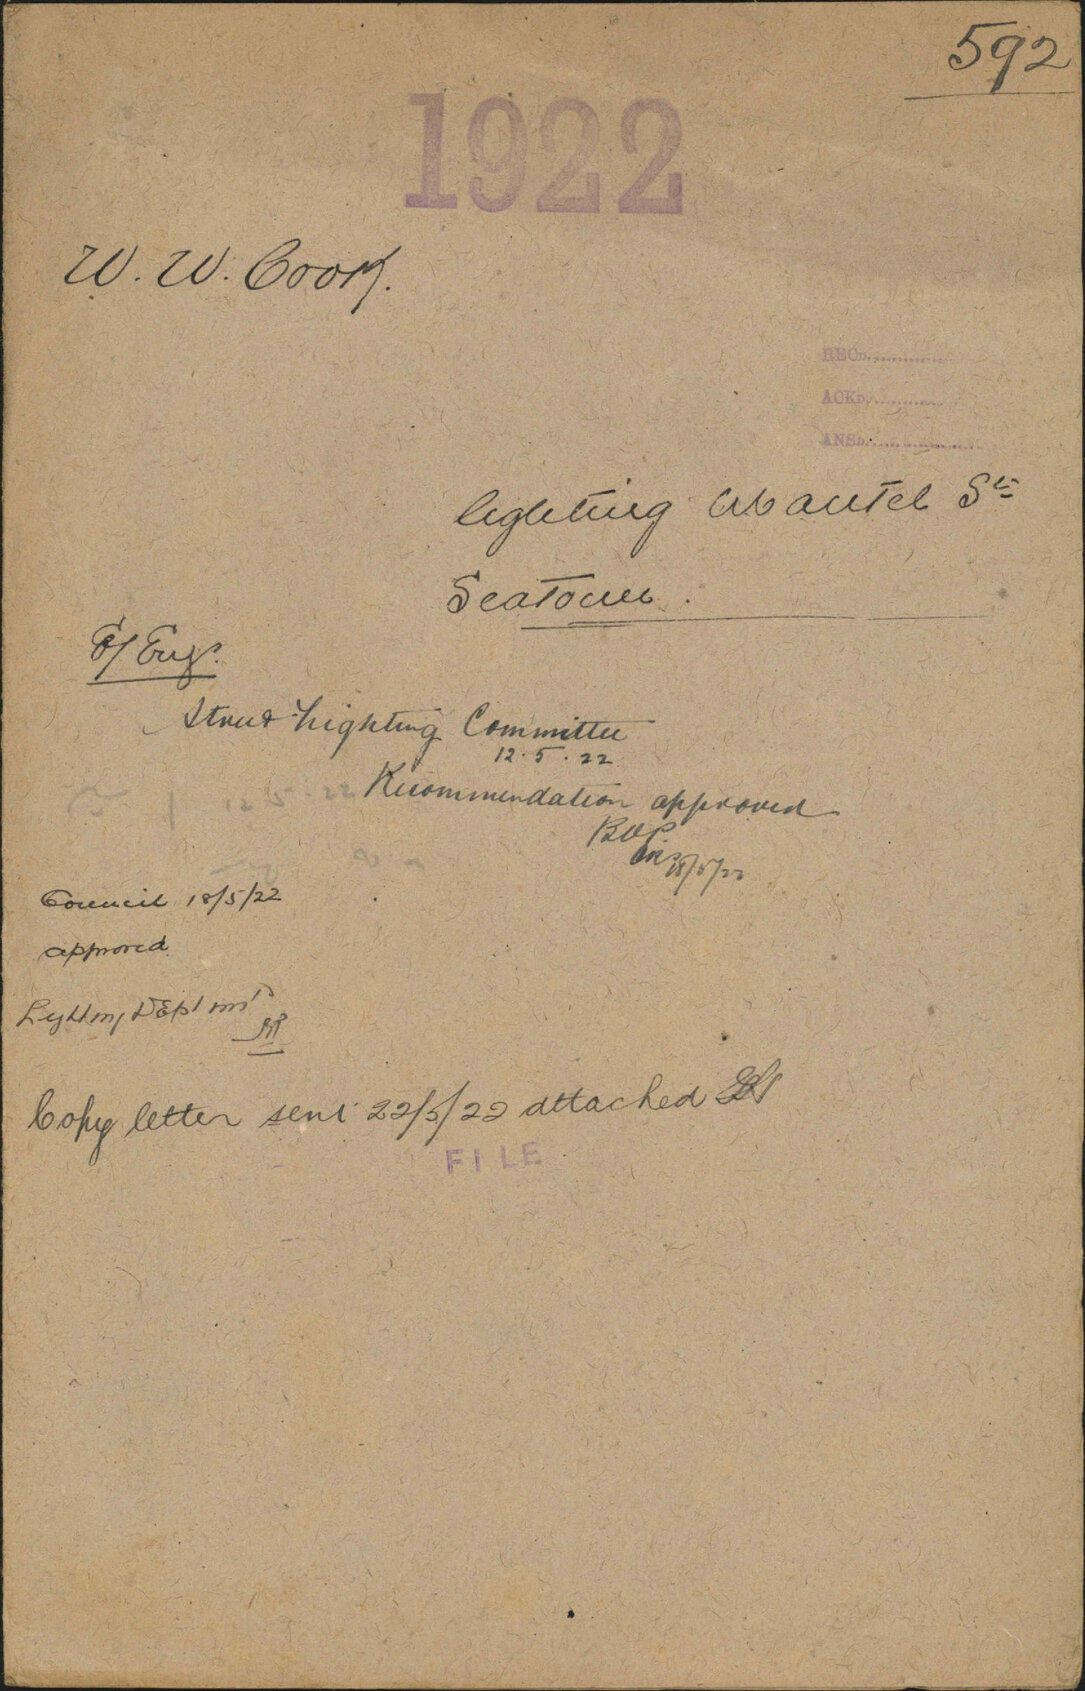 592
1922
W. W. Cook.
RECD.
ACKD.
ANSD.
lighting Mantel St
Seatoun.
E/Eng.
Street Lighting Committee
12.5.22
Recommendation approved
18/5/22
Council 18/5/22
approved
Lighting Dept
Copy letter sent 22/5/22 attached
FILE